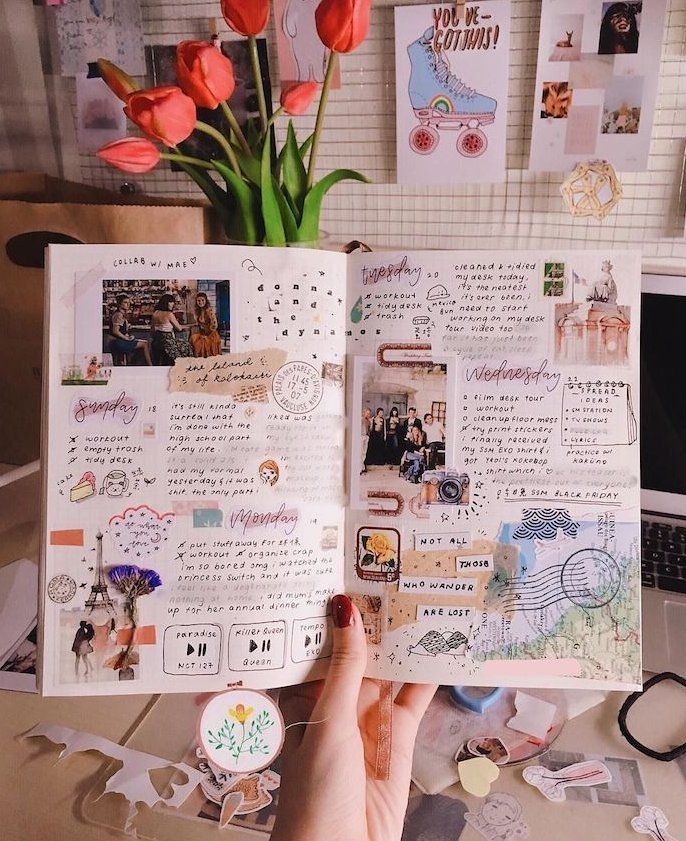 YOU'VE
GOT THIS!
COLLAB W/ MAE ♡
donna
and
the
dynamos
the island
of Kalokairi
11 45
17-5
07
Sunday 18
workout
empty trash
tidy desk
it's still kinda
surreal that
i'm done with the
high school part
of my life.
had my normal
yesterday & it was
shit. the only part i
liked was
cake
do what
you
love
Monday 19
put stuff away for
workout organize crap
i'm so bored omg i watched the
princess switch and it was cute
i did mum's make
up for her annual dinner thing
Paradise
NCT 127
Killer Queen
Queen
Tempo
EXO
tuesday 20
workout
tidy desk
trash
mexico
bun
cleaned & tidied
my desk today,
it's the neatest
it's ever been, i
need to start
working on my desk
tour video too
Wednesday 22
film desk tour
workout
clean up floor mess
try print stickers
i finally received
my SSM EXO shirt & i
got YEOL'S KOKOBOP
shirt which i ♡
SPREAD
IDEAS
CM STATION
TV SHOWS
LYRICS
practice w/
kakuno
SSM BLACK FRIDAY
NOT ALL
THOSE
WHO WANDER
ARE LOST